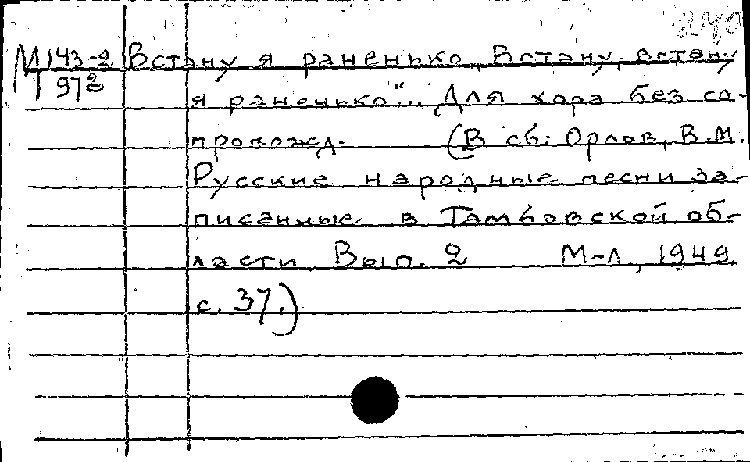 240
М143-2 Встану я раненько "Встану, встану
97² я раненько"... Для хора без со-
провожд. (В сб.: Орлов, В.М.
Русские народные песни за-
писанные в Тамбовской об-
ласти. Вып. 2 М-Л., 1949
с. 37.)